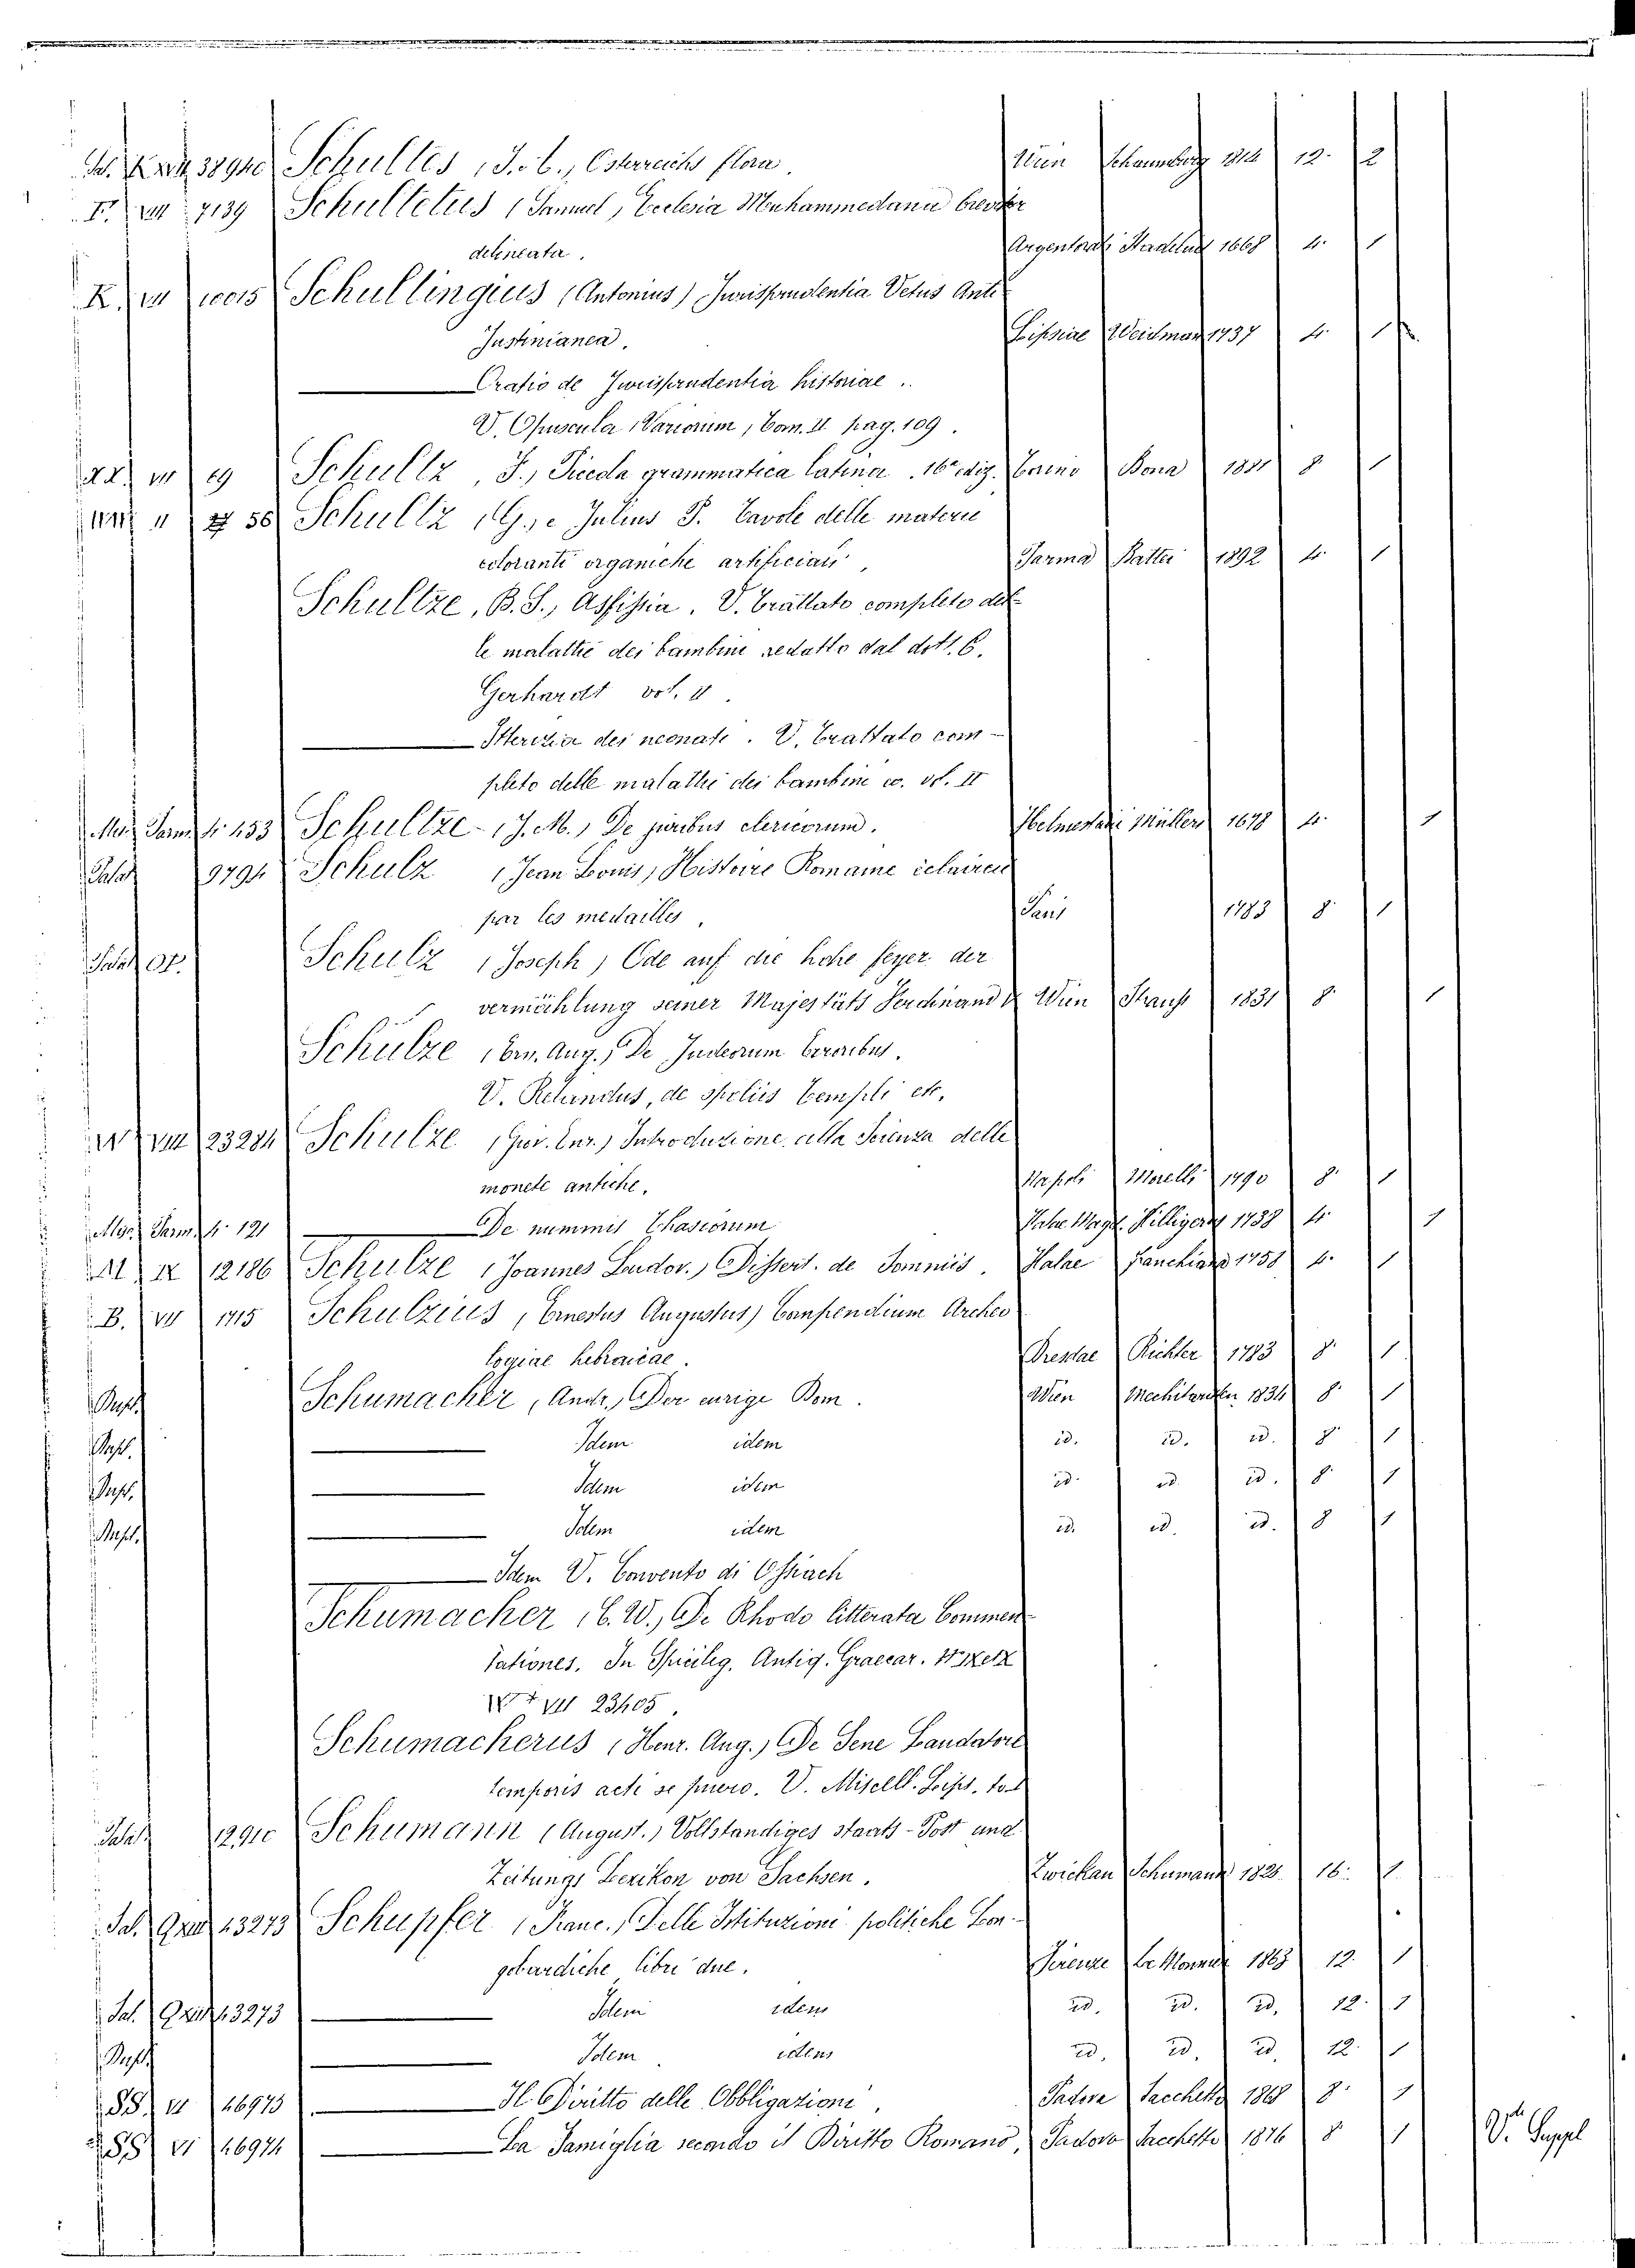 38940 Schultes, J. C., Österreichs flora. Wien Schaumburg 1814 12. 2
F. VIII 7139 Schultetus (Samuel) Ecclesia Muhammedana breviter
delineata. Argentorati Städelius 1668 4. 1
K. VII 10015 Schultingius (Antonius) Jurisprudentia Vetus Anti
Justinianea. Lipsiae Weidman 1737 4. 1
Oratio de Jurisprudentia historiae.
V. Opuscula Variorum, Tom. II pag. 109.
VII 69 Schultz, J., Piccola grammatica latina. 16ª ediz. Torino Bona 1881 8 1
II 56 Schultz, G., e Julius P. Tavole delle materie
coloranti organiche artificiali. Parma Battei 1892 4. 1
Schultze, B. S., Asfissia. V. Trattato completo del
le malattie dei bambini redatto dal dott. C.
Gerhardt vol. II.
Itterizia dei neonati. V. Trattato com-
pleto delle malattie dei bambini vol. II
453 Schultze (J. M.) De juribus clericorum. Helmestadii Müllers 1678 4. 1
Palat 9794 Schulz (Jean Louis) Histoire Romaine eclaircie
par les medailles. Paris 1783 8 1
Palat Schulz (Joseph) Ode auf die hohe feyer der
vermählung seiner Majestäts Ferdinand V Wien Strauss 1831 8. 1
Schulze (Ern. Aug.) De Judeorum
V. Relandus, de spoliis Templi etc.
VIII 23284 Schulze (Introduzione alla Scienza delle
monete antiche. Napoli Morelli 1790 8. 1
121 De nummis Thasiorum Halae Magd. Hilligeros 1738 4. 1
IX 12186 Schulze (Joannes Ludov.) Dissert. de Somniis. Halae 1758 4. 1
B. VII 1715 Schulzius (Ernestus Augustus) Compendium Archeo
logiae hebraicae. Dresdae Richter 1793 8. 1
Dupl. Schumacher, Andr., Der eurige Dom. Wien Mechitaristen 1834 8. 1
Dupl. Idem idem id. id. id. 8 1
Dupl. Idem idem id. id. id. 8. 1
Dupl. Idem idem id. id. id. 8 1
Idem V. Convento di Ossiach
Schumacher (C. W.) De Rhodo litterata Commen
tationes. In Spicileg. Antiq. Graecar.
VII 23405.
Schumacherus (Henr. Aug.) De Sene Laudatore
temporis acti se puero. V. Miscell. Leips.
Palat 12910 Schumann (August.) Vollständiges staats-Post und
Zeitungs Lexikon von Sachsen. Zwickau Schumann 16.
Sal. 13273 Schupfer (Franc.) Delle Istituzioni politiche Lon-
gobardiche libri due. Firenze Le Monnier 1863 12. 1
Sal. 13273 Idem idem id. id. id. 12. 1
Dupl. Idem idem id. id. id. 12. 1
SS. VI 46973 Il Diritto delle Obbligazioni. Padova Sacchetto 1868 8. 1
SS. VI 46974 La Famiglia secondo il Diritto Romano, Padova Sacchetto 1876 8 1 V. Suppl